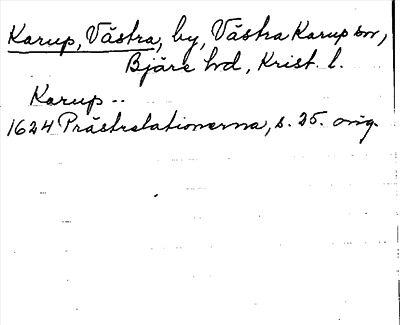 Karup, Västra, by, Västra Karup sn,
Bjäre hd, Krist. l.
Karup --
1624 Prästrelationerna, s. 25. orig.